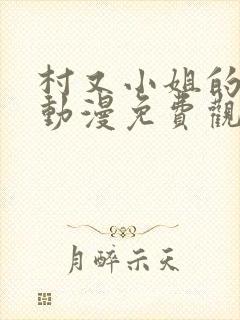 村又小姐的
動漫免費觀
月醉示天